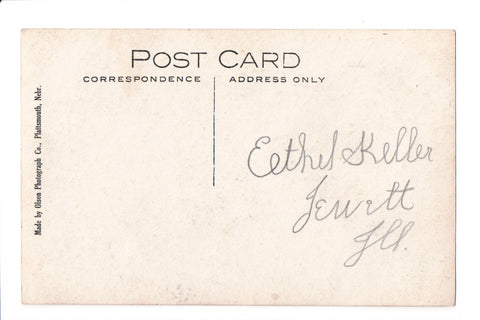 POST CARD
CORRESPONDENCE
ADDRESS ONLY
Made by Olson Photograph Co., Plattsmouth, Nebr.
Eethel Keller
Jewett
Ill.